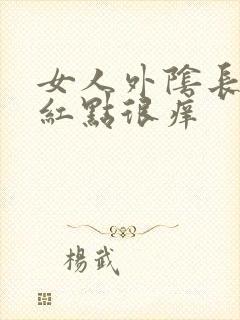 女人外陰長
紅點很痒
楊武